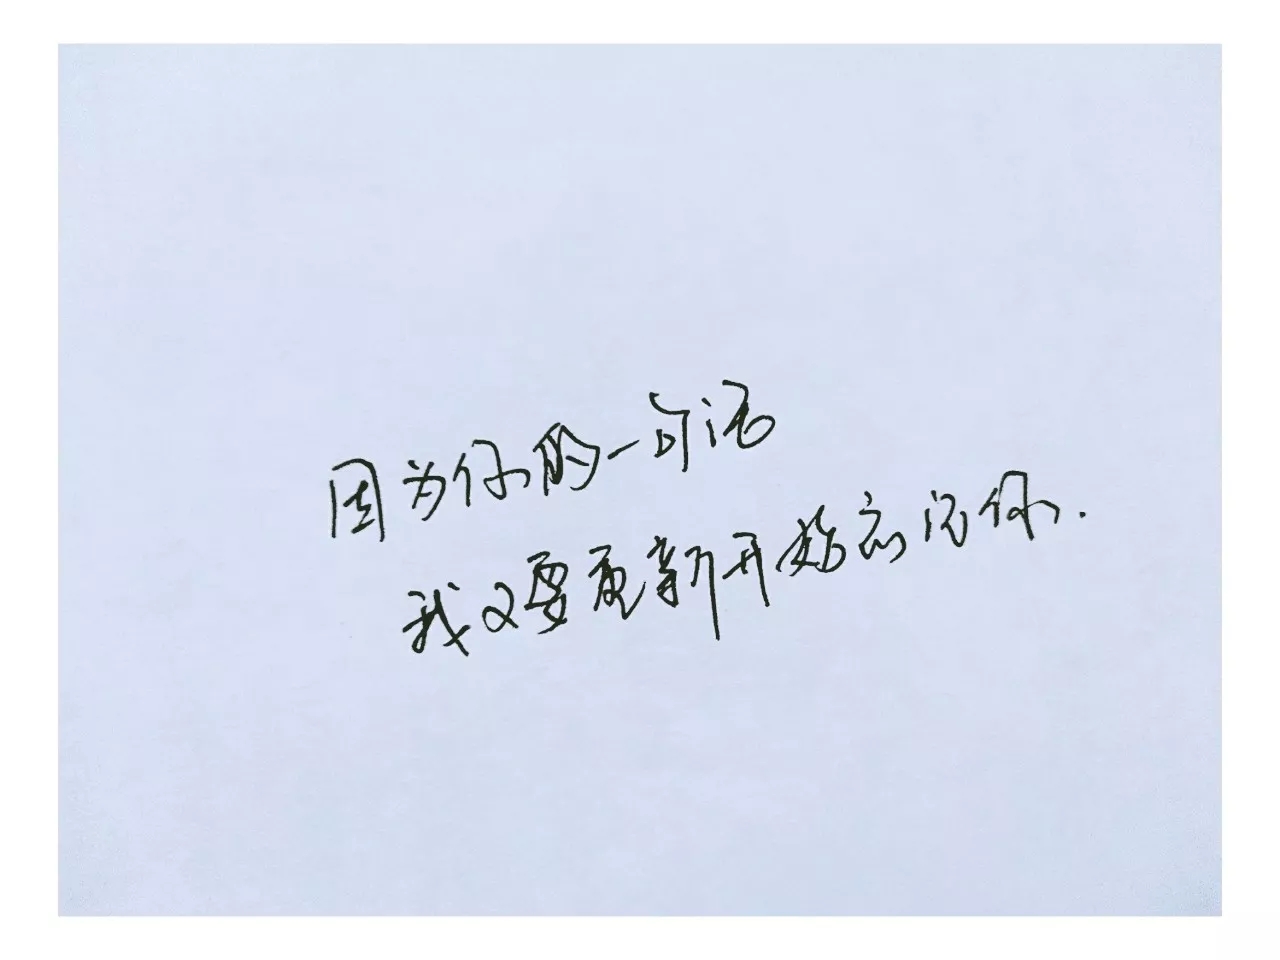 因为你的一句话
我又要重新开始忘记你.